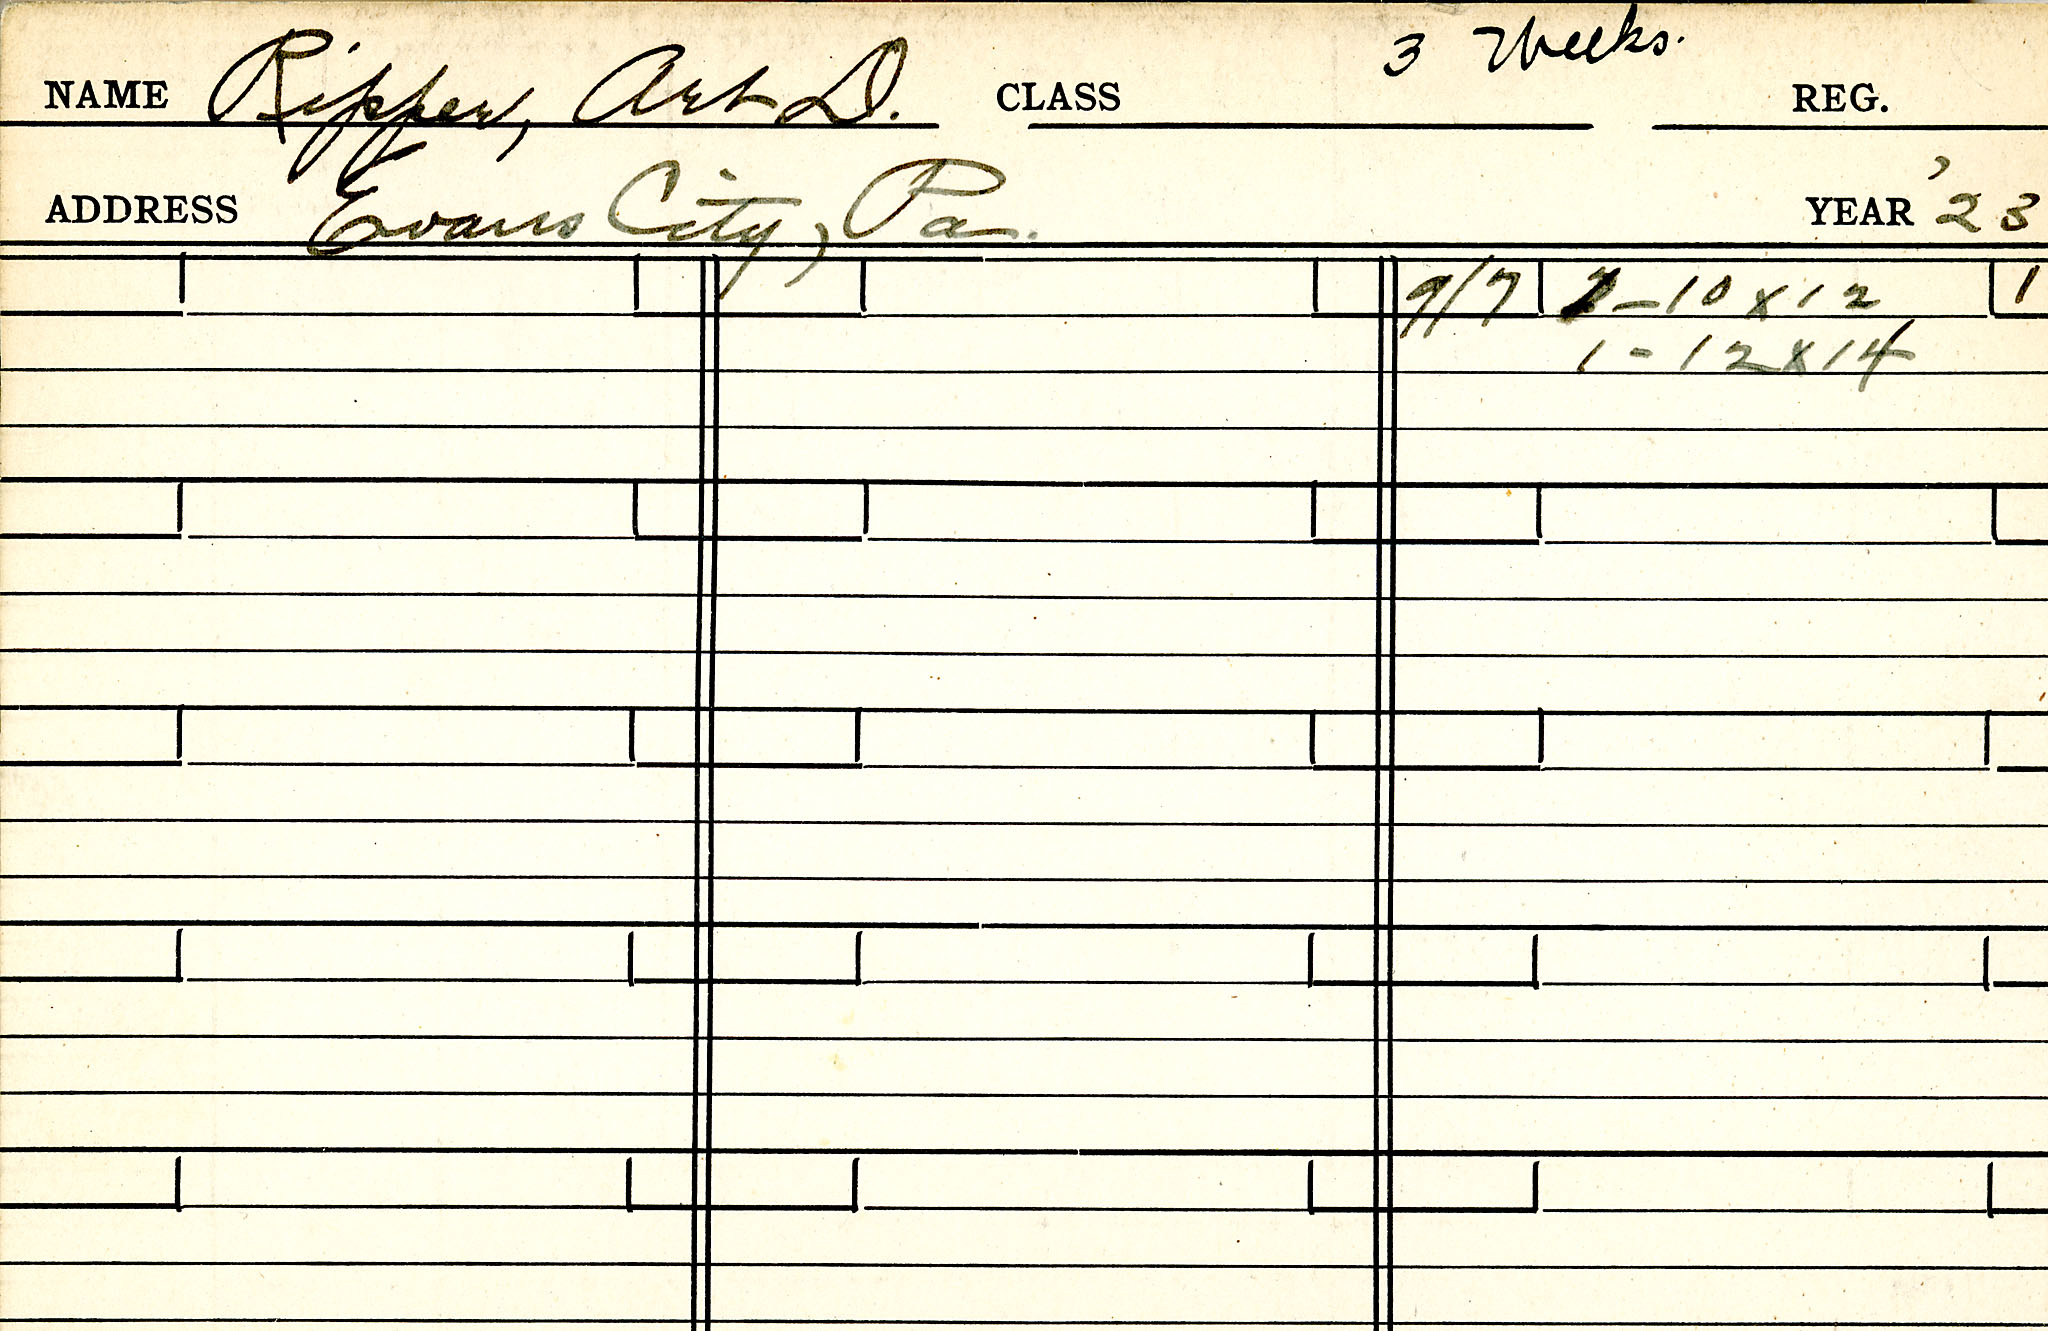 3 Weeks.
NAME Ripper, Art D. CLASS REG.
ADDRESS Evans City, Pa. YEAR '23
9/7 2-10x12 1
1-12x14